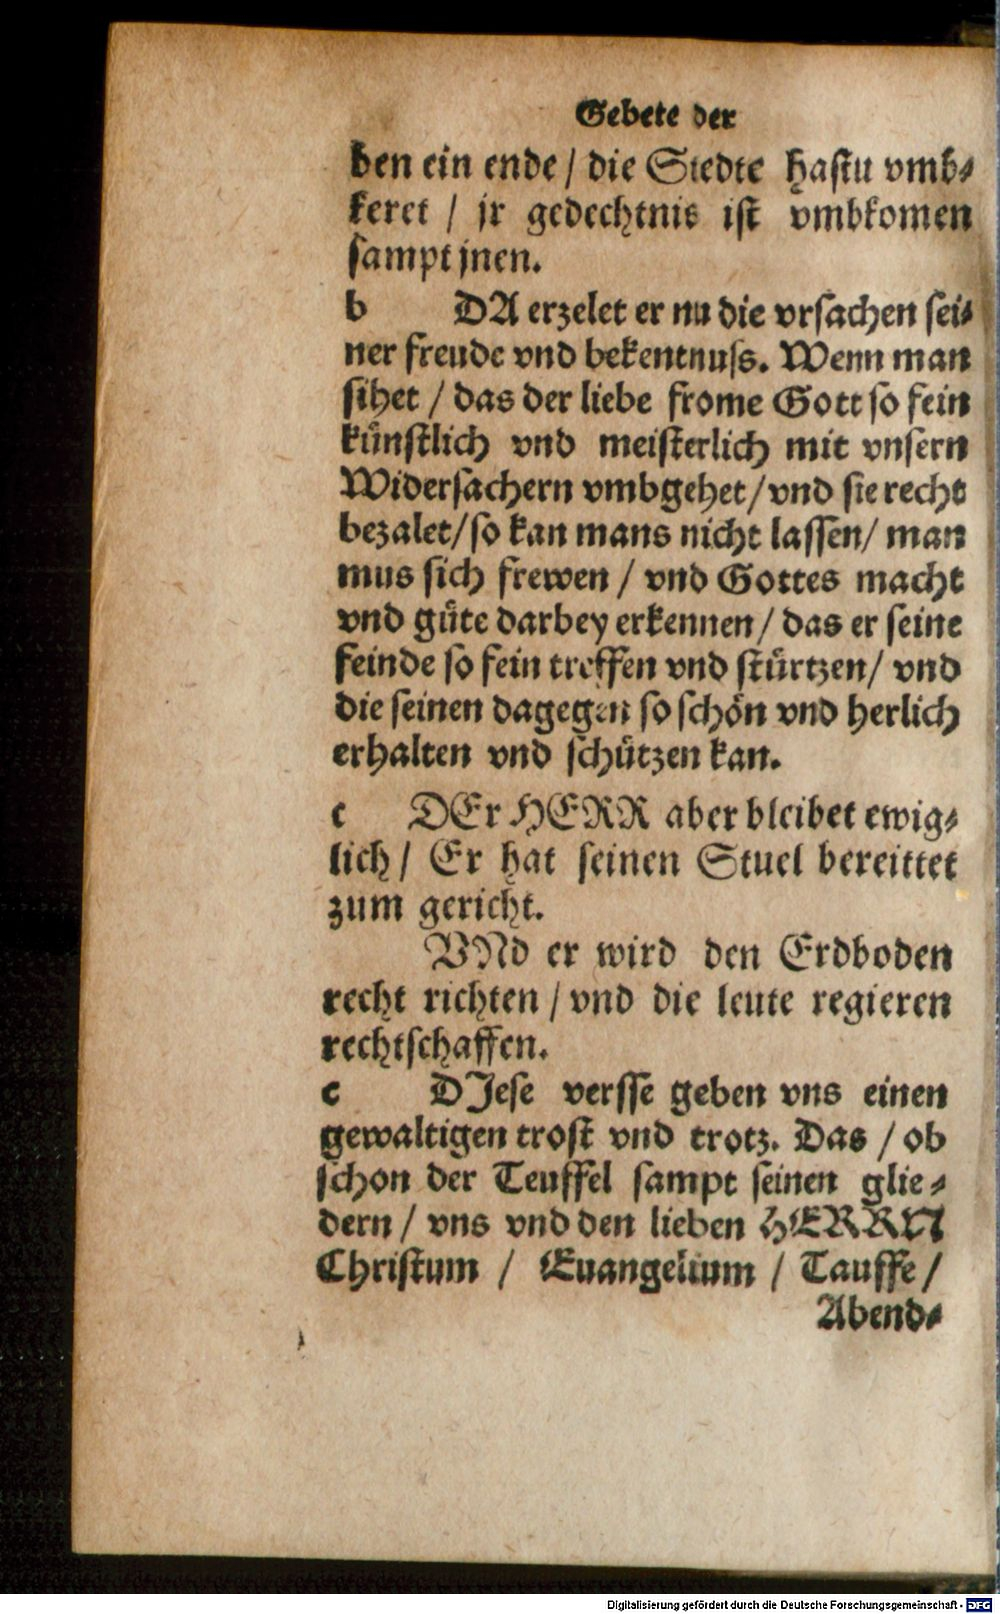 Gebete der
ben ein ende / die Stedte hastu vmb⸗
keret / jr gedechtnis ist vmbkomen
sampt jnen.
b DA erzelet er nu die vrsachen sei⸗
ner freude vnd bekentnuss. Wenn man
sihet / das der liebe frome Gott so fein
kuͤnstlich vnd meisterlich mit vnsern
Widersachern vmbgehet / vnd sie recht
bezalet / so kan mans nicht lassen / man
mus sich frewen / vnd Gottes macht
vnd guͤte darbey erkennen / das er seine
feinde so fein treffen vnd stuͤrtzen / vnd
die seinen dagegen so schoͤn vnd herlich
erhalten vnd schuͤtzen kan.
c DEr HERR aber bleibet ewig⸗
lich / Er hat seinen Stuel bereittet
zum gericht.
VNd er wird den Erdboden
recht richten / vnd die leute regieren
rechtschaffen.
c DJese versse geben vns einen
gewaltigen trost vnd trotz. Das / ob
schon der Teuffel sampt seinen glie⸗
dern / vns vnd den lieben HERRN
Christum / Euangelium / Tauffe /
Abend⸗
Digitalisierung gefördert durch die Deutsche Forschungsgemeinschaft - DFG